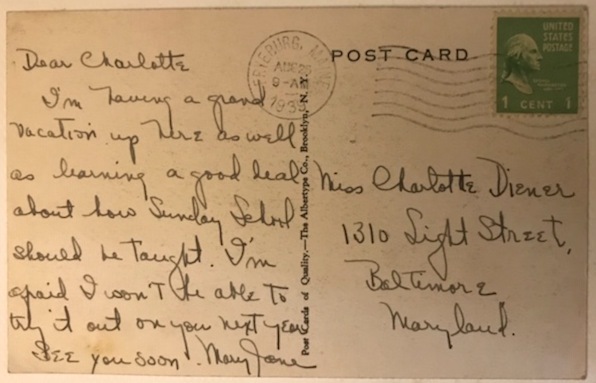 Dear Charlotte
I'm having a grand
vacation up here as well
as learning a good deal
about how Sunday School
should be taught. I'm
afraid I won't be able to
try it out on you next year
See you soon. Mary Jane
FRYEBURG, MAINE
9-AM
POST CARD
UNITED
STATES
POSTAGE
1 CENT 1
Post Cards of Quality.—The Albertype Co., Brooklyn, N.Y.
Miss Charlotte Diener
1310 Light Street,
Baltimore
Maryland.